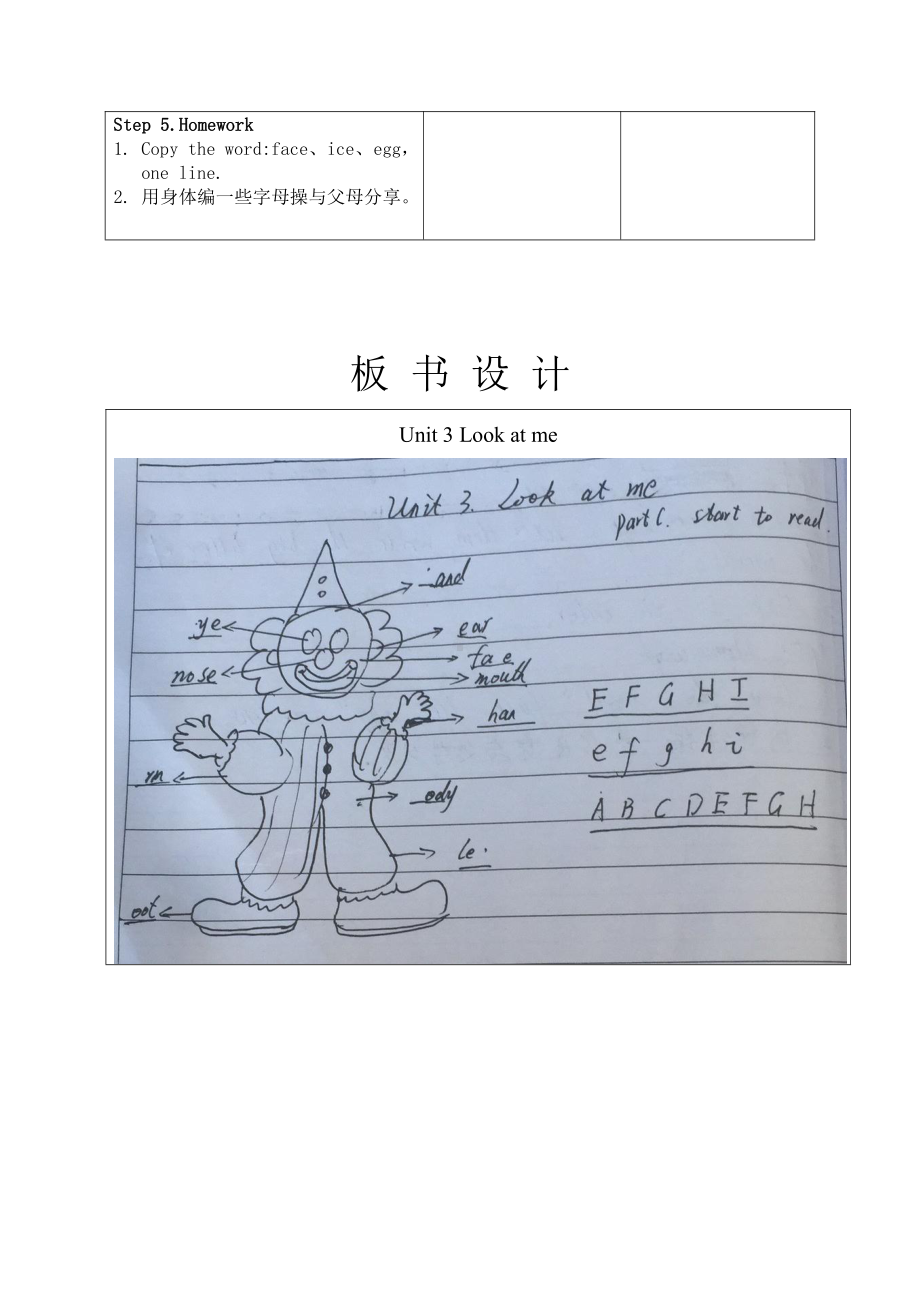 Step 5.Homework
1. Copy the word:face、ice、egg，
one line.
2. 用身体编一些字母操与父母分享。
板 书 设 计
Unit 3 Look at me
Unit 3. Look at me
part C. start to read.
_and
_ye
ear
fa e
nose
mouth
han__
E F G H I
e f g h i
_rm
_ody
A B C D E F G H
le_
_oot